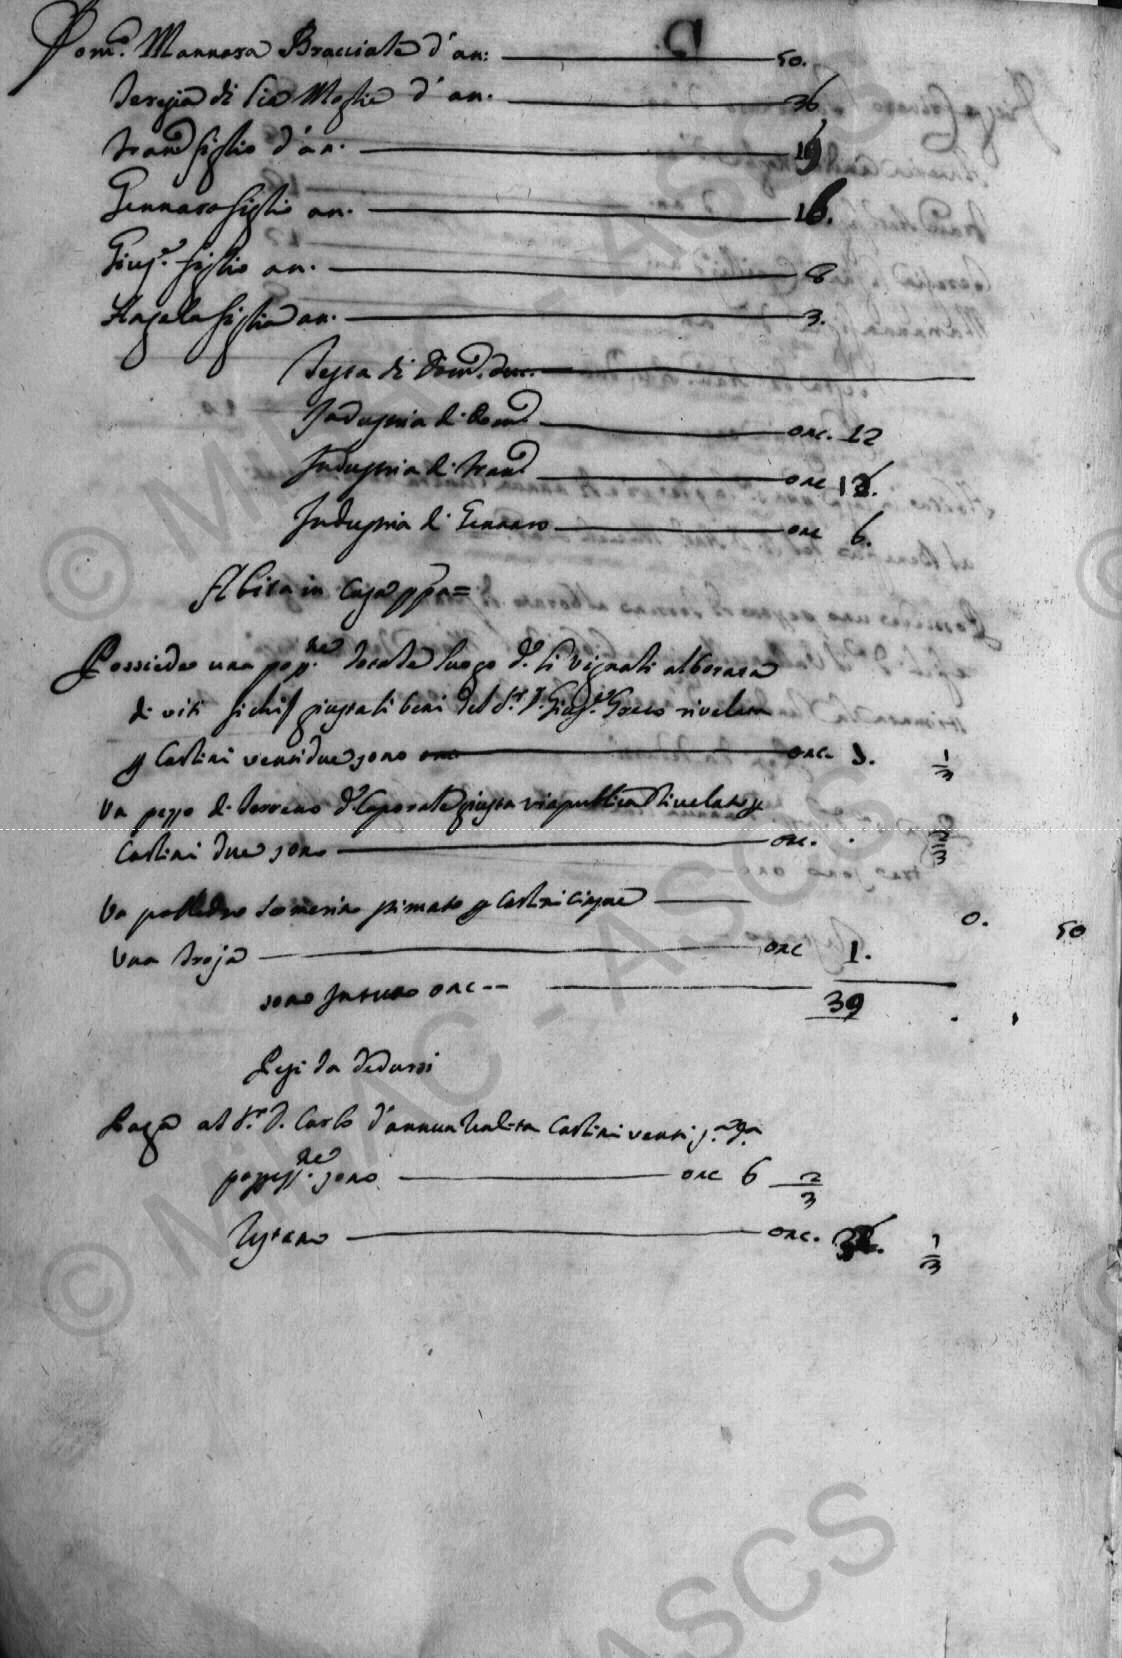 D.
Dom.co Mannara Bracciale d'an: 50.
Teresia di lia Moglie d'an. 36
Fran.co figlio d'an. 19
Gennaro figlio an. 16.
Giuse. figlio an. 8
Angela figlia an. 3.
Testa di Dom.co duc.
Industria di Dom.co onc. 12
Industria di Fran.co onc 12.
Industria di Gennaro onc 6.
Abita in Casa ppa=
Possiede una poss.ne locale luogo d.o li Vignali alborata
di viti fichi giusta li beni del S.r D. Giuse. Greco rivelata
p Carlini ventidue sono onc. 1/3
Un pezzo di terreno d.o giusta via publica rivelato p
Carlini due sono onc. . 2/3
Un polledro somerino primato p Carlini cinque 0. 50
Una troja onc 1.
sono In tutto onc-- 39
Pesi da dedursi
Paga al S.r D. Carlo Carlini venti
poss.ne sono onc 6 2/3
Restano onc. 32. 1/3
© MiBAC - ASCS
© MiBAC - ASCS
ASCS